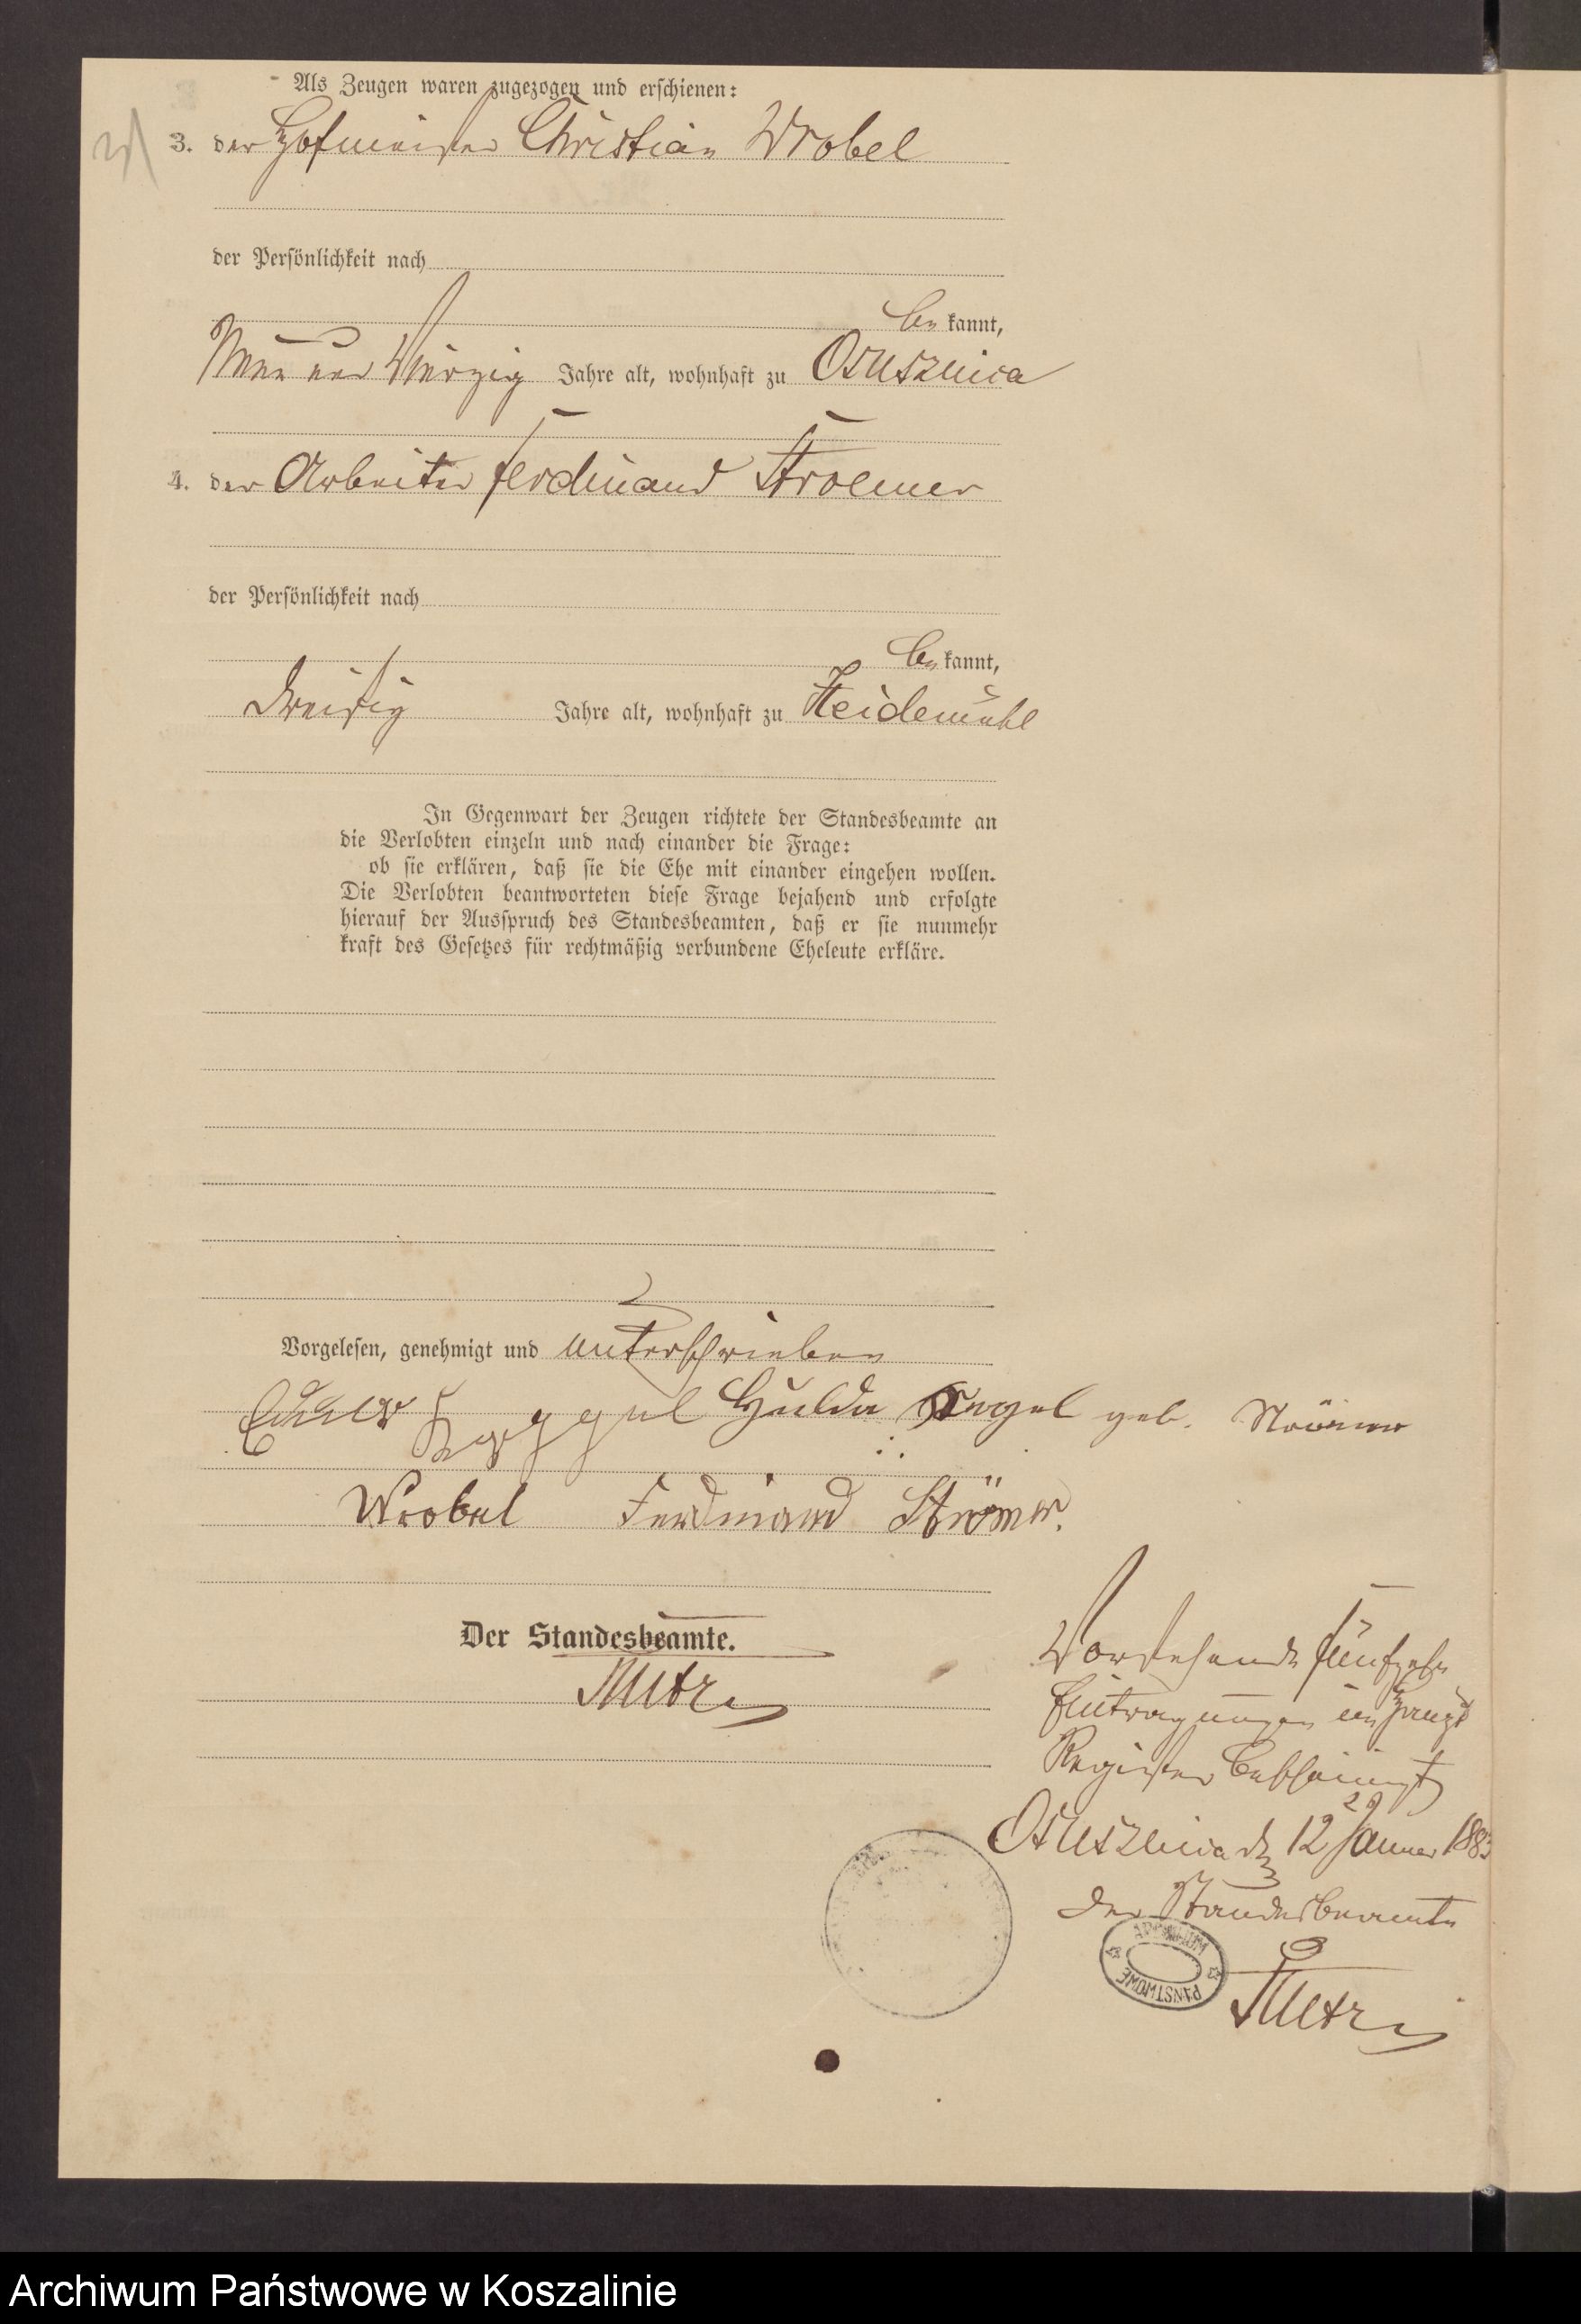 Als Zeugen waren zugezogen und erschienen:
3. der Hofmeister Christian Wrobel
der Persönlichkeit nach
be kannt,
Neun und Vierzig Jahre alt, wohnhaft zu Osusznica
4. der Arbeiter Ferdinand Stroemer
der Persönlichkeit nach
be kannt,
dreißig Jahre alt, wohnhaft zu Heidemühl
In Gegenwart der Zeugen richtete der Standesbeamte an
die Verlobten einzeln und nach einander die Frage:
ob sie erklären, daß sie die Ehe mit einander eingehen wollen.
Die Verlobten beantworteten diese Frage bejahend und erfolgte
hierauf der Ausspruch des Standesbeamten, daß er sie nunmehr
kraft des Gesetzes für rechtmäßig verbundene Eheleute erkläre.
Vorgelesen, genehmigt und unterschrieben
Hulda geb.
Wrobel Ferdinand Strömer.
Der Standesbeamte.
Vorstehende fünfzehn
Eintragungen im Haupt
Register bescheinigt
Osusznica d 12 Januar 1883
Der Standesbeamte
ARCHIWUM
PAŃSTWOWE
Archiwum Państwowe w Koszalinie